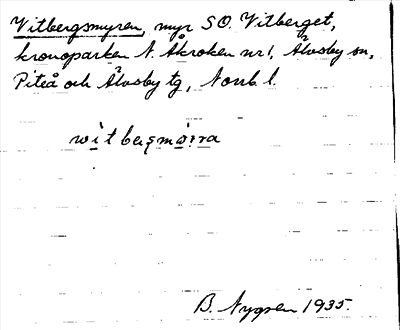 Vitbergsmyren, myr SO. Vitberget,
kronoparken N. Åkroken nr 1, Älvsby sn,
Piteå och Älvsby tg, Norrb. l.
witbergsmørra
B. Nygren 1935.